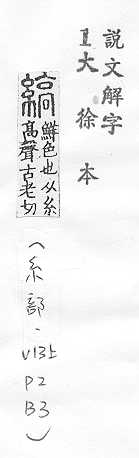 説文解字
1大徐本
縞
鮮色也从糸
高聲古老切
(糸部.
V13上
P2
B3)